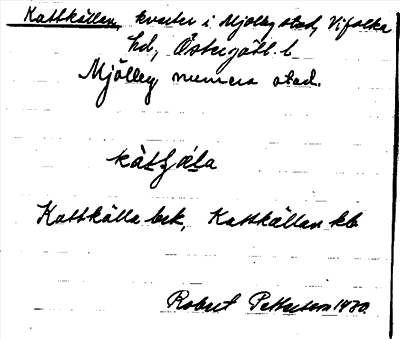 Kattkällan, kvarter i Mjölby stad, Vifolka
hd, Östergötl. l
Mjölby numera stad.
Kattkälla bek, Kattkällan kb
Robert Pettersson 1930.